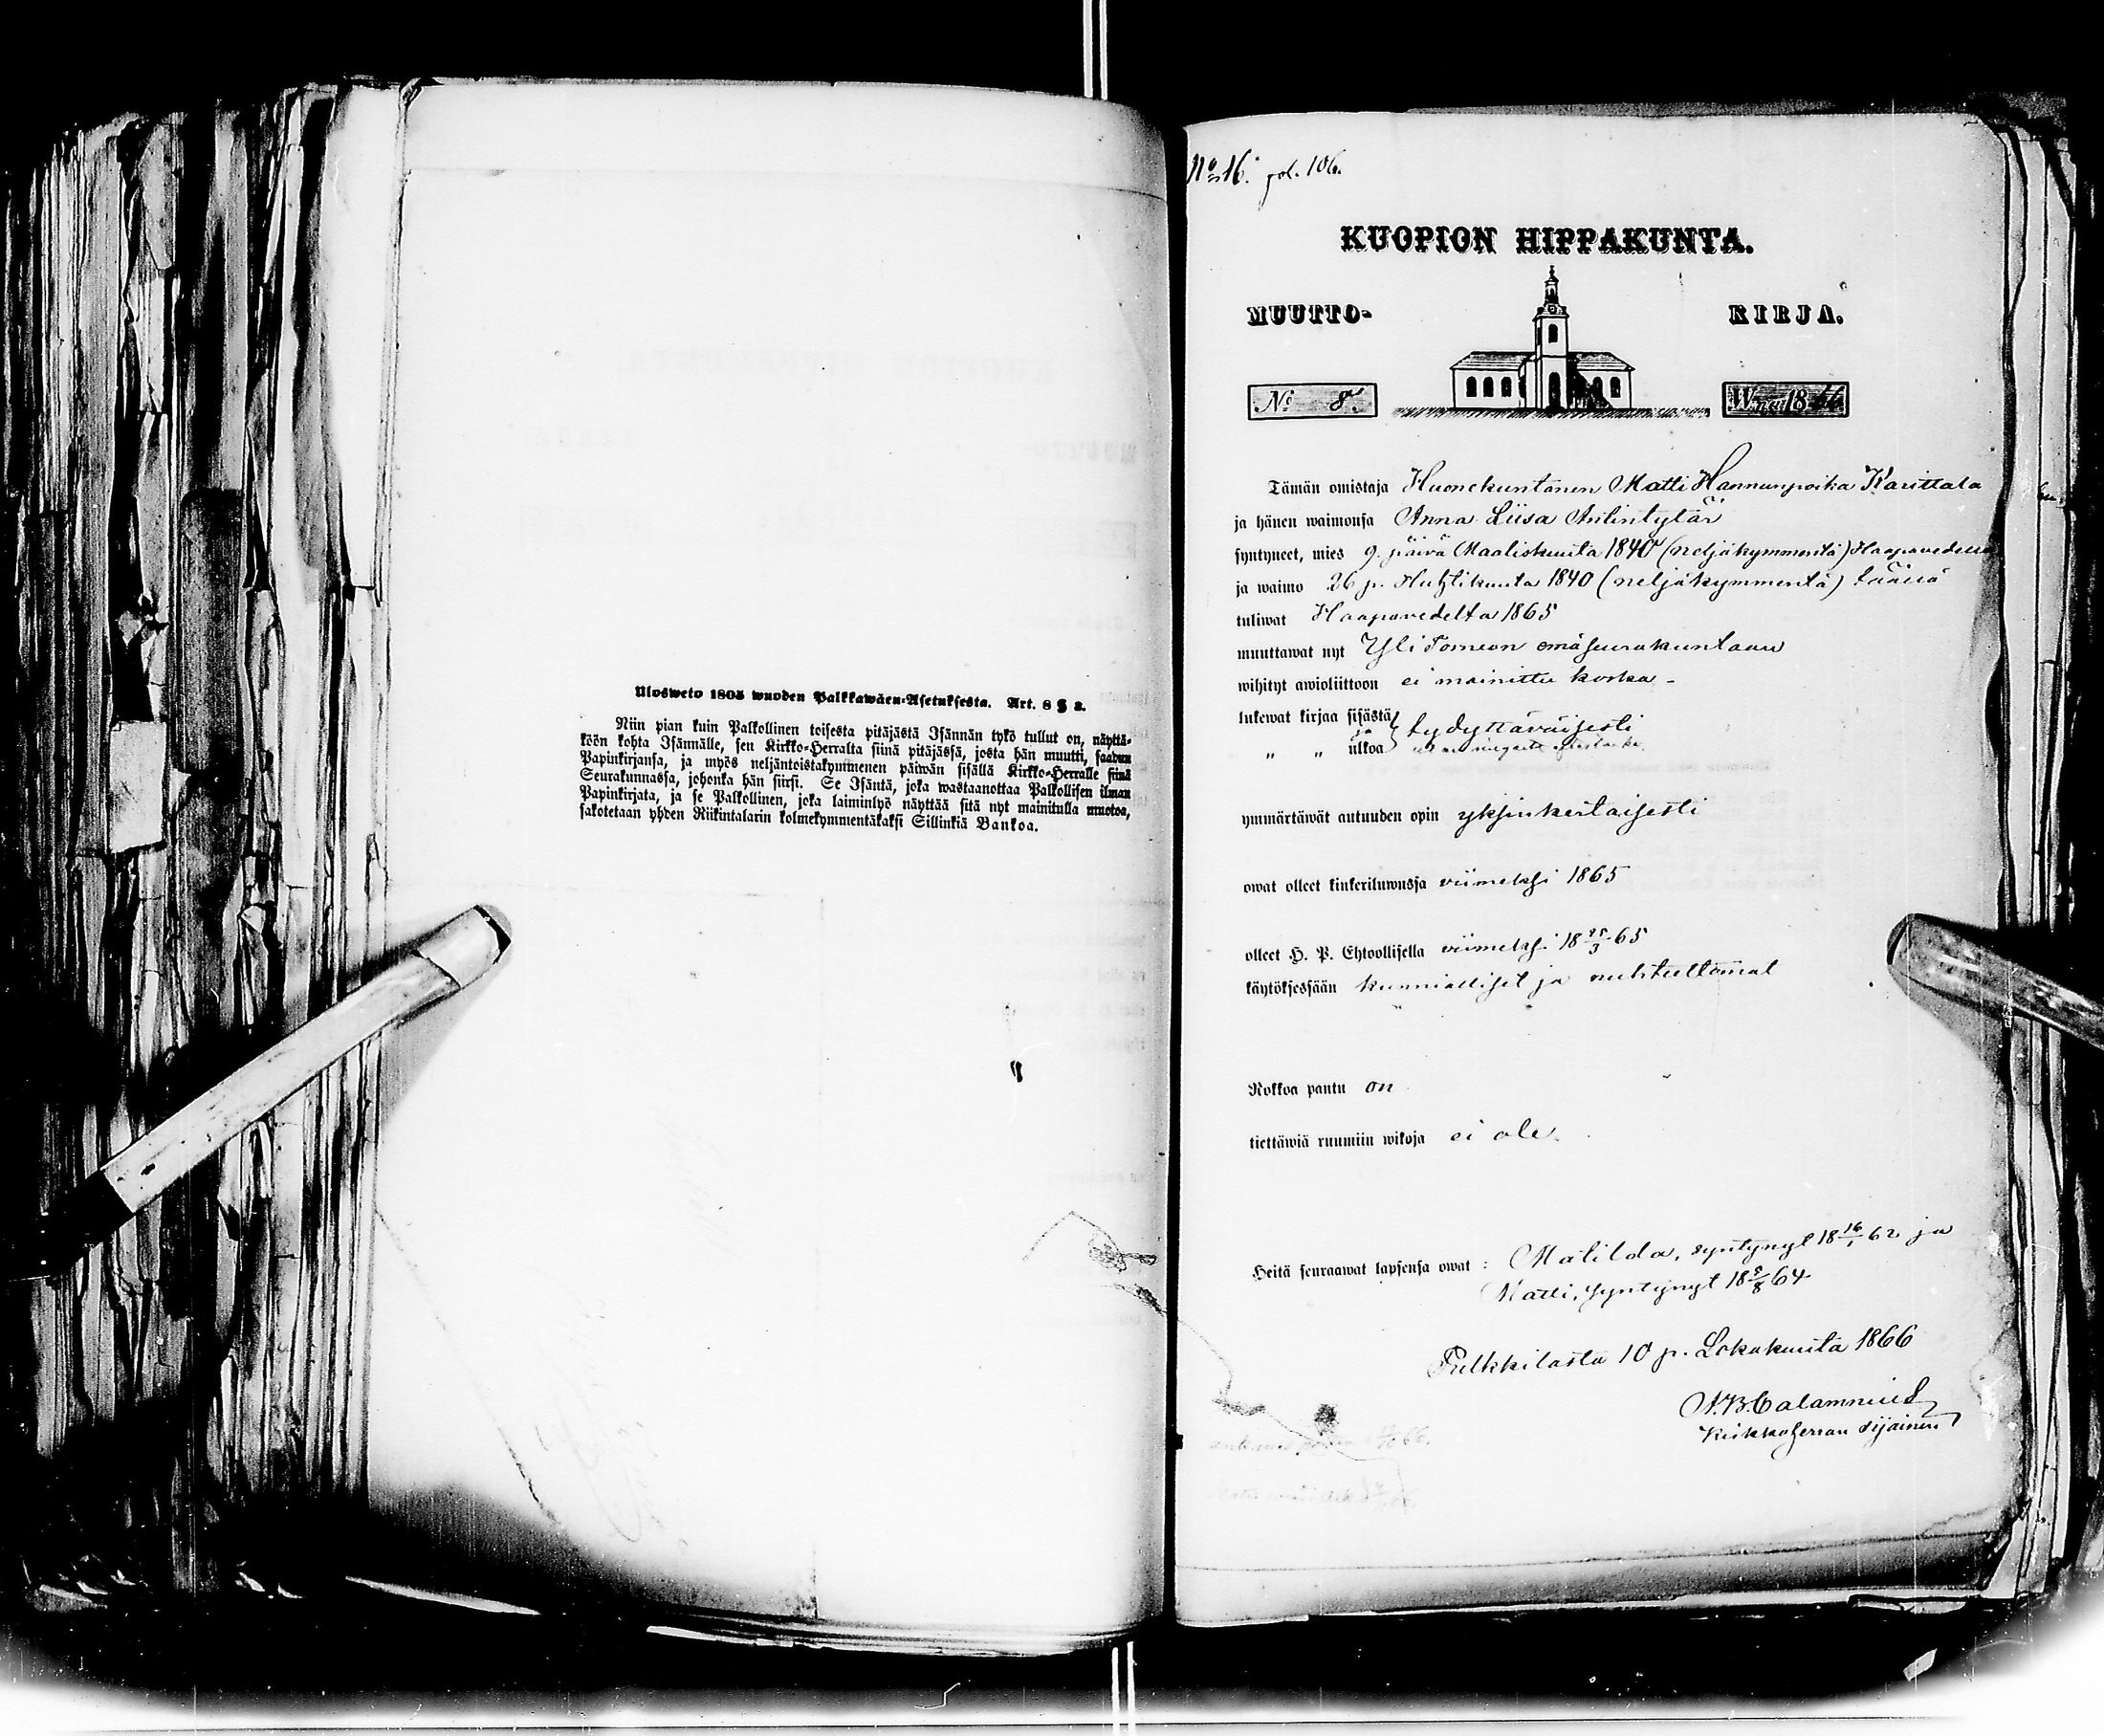 Ulosweto 1805 wuoden Palkkawäen-Asetuksesta. Art. 8 § 2.
Niin pian kuin Palkollinen toisesta pitäjästä Isännän tykö tullut on, näyttä-
köön kohta Isännälle, sen Kirkko-Herralta siinä pitäjässä, josta hän muutti, saadun
Papinkirjansa, ja myös neljäntoistakymmenen päiwän sisällä Kirkko-Herralle siinä
Seurakunnassa, johonka hän siirsi. Se Isäntä, joka wastaanottaa Palkollisen ilman
Papinkirjata, ja se Palkollinen, joka laiminlyö näyttää sitä nyt mainitulla muotoa,
sakotetaan yhden Riikintalarin kolmekymmentäkaksi Sillinkiä Bankoa.
No 16. fol. 106.
KUOPION HIPPAKUNTA.
MUUTTO- KIRJA.
No 8. W. 1866
Tämän omistaja Huonekuntanen Matti Hannunpoika Karittala
ja hänen waimonsa Anna Liisa Antintytär
syntyneet, mies 9. päivä Maaliskuuta 1840 (neljäkymmentä) Haapavedellä
ja waimo 26 p. Huhtikuuta 1840 (neljäkymmentä) täällä
tuliwat Haapavedeltä 1865
muuttawat nyt Yli Tornean emäseurakuntaan
wihityt awioliittoon ei mainittu koska -
lukewat kirjaa sisästä tydyttäväisesti
ja
„ „ ulkoa
ymmärtäwät autuuden opin yksinkertaisesti
owat olleet kinkeriluwussa viimeksi 1865
olleet H. P. Ehtoollisella viimeksi 18 25/3 65
käytöksessään kunnialliset ja nuhteettomat
Rokkoa pantu on
tiettäwiä ruumiin wikoja ei ole.
Heitä seuraawat lapsensa owat : Matilda, syntynyt 18 16/1 62 ja
Matti, syntynyt 18 5/8 64
Pulkkilasta 10 p. Lokakuuta 1866
N. B. Calamnius
Kirkkoherran sijainen